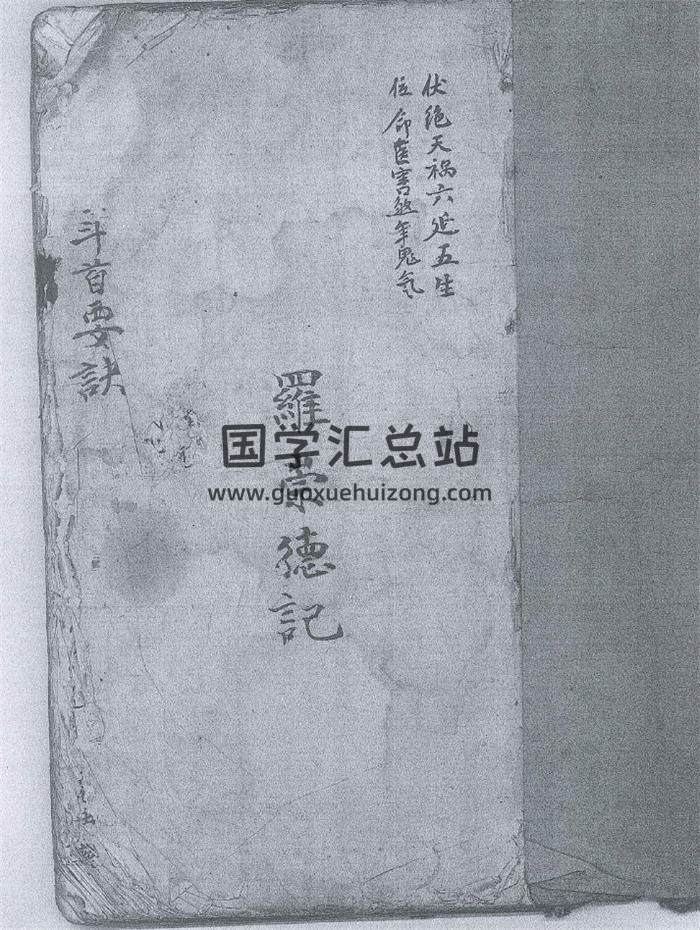 伏絶天禍六延五生
位命醫害煞年鬼氣
羅崇德記
斗首要訣
国学汇总站
www.guoxuehuizong.com